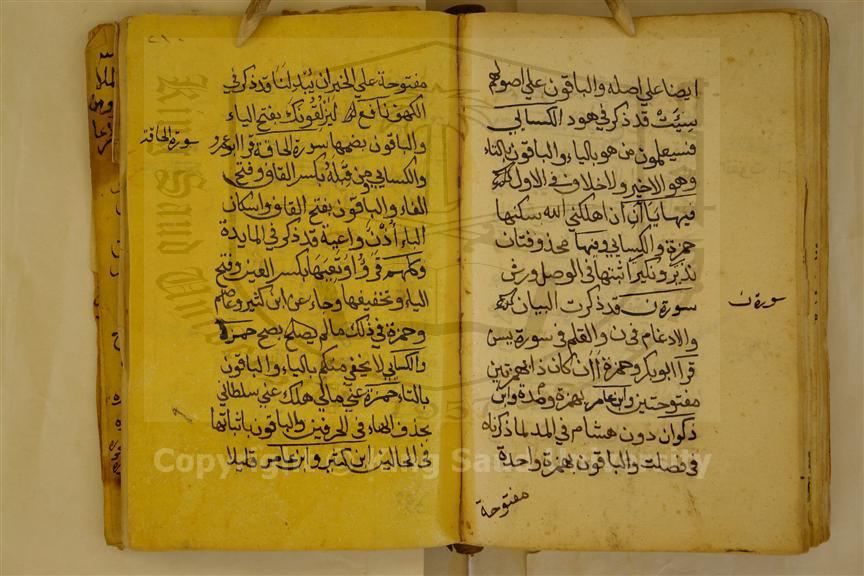 ايضا علي اصله والباقون علي اصولهم
سيئت قد ذكر في هود الكسائي
فسيعلمون من هو بالياء والباقون بالتاء
وهو الاخير ولا خلاف في الاول
فيها يا آن ان اهلكني الله سكنها
حمزة والكسائي وفيها محذوفتان
نذير ونكير اثبتها في الوصل ورش
سورة ن قد ذكرت البيان
والادغام في ن والقلم في سورة يس
قرا ابو بكر وحمزة أأن كان ذا بهمزتين
مفتوحتين وابن عامر بهمزة ومدة وابن
ذكوان دون هشام في المد لما ذكرناه
في فصلت والباقون بهمزة واحدة
مفتوحة
سورة ن
مفتوحة علي الخبر ان يبدلنا قد ذكر في
الكهف نافع ليزلقونك بفتح الياء
والباقون بضمها سورة الحاقة قرا ابو عمرو
والكسائي ومن قبله بكسر القاف وفتح
الباء والباقون بفتح القاف واسكان
الباء أذن واعية قد ذكر في المايدة
وكلهم قرؤا وتعيها بكسر العين وفتح
الياء وتخفيفها وجاء عن ابن كثير وعاصم
وحمزة في ذلك ما لم يصلح يصح حمزة
والكسائي لا يخفي منكم بالياء والباقون
بالتاء حمزة عني مالي هلك عني سلطاني
بحذف الهاء في الحرفين والباقون باثباتها
في الحالين ابن كثير وابن عامر قليلا
سورة الحاقة
Copyright © King Saud University
King Saud
1957